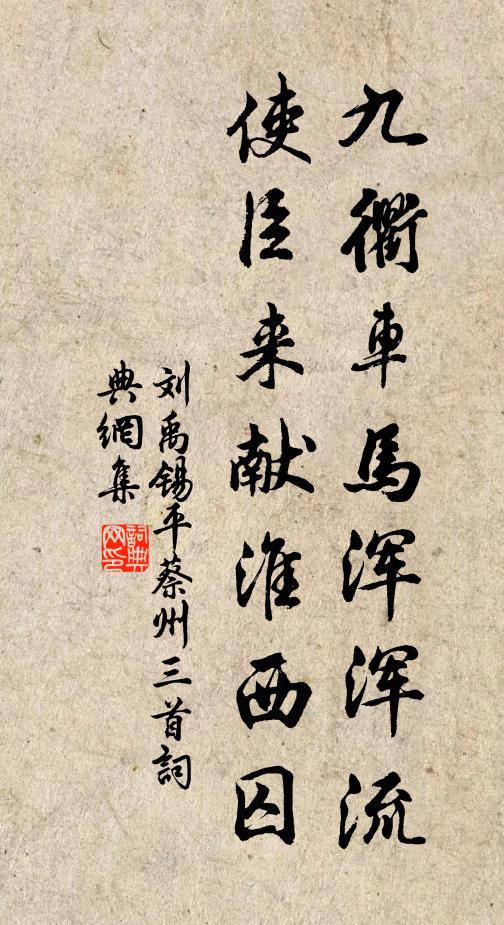 九衢車馬浑浑流
使臣来献淮西囚
刘禹锡平蔡州三首詞
典網集
詞典
网印